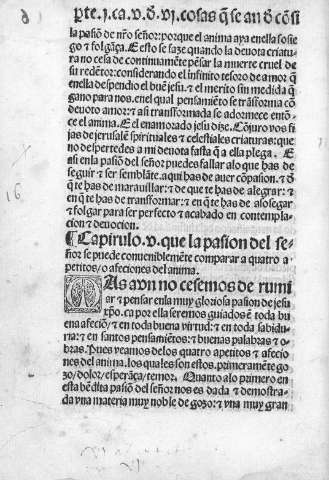 pte.j.ca.v.đ.vj.cosas q̃ se an đ cõsi
la pasiõ de nr̃o señor: porque el anima aya enella sosie
go ⁊ folgãça. E esto se faze quando la deuota criatu
ra no cesa de continuamẽte pẽsar la muerte cruel de
su redẽtor: considerando el infinito tesoro de amor q̃
enella despendio el buẽ jesu. ⁊ el merito sin medida q̃
gano para nos. enel qual pensamiẽto se trãsforma cõ
deuoto amor: ⁊ asi transformada se adormece entõ-
ce el anima. E el enamorado jesu dize. Cõjuro vos fi
jas de jerusalẽ spirituales ⁊ celestiales criaturas: que
no despertedes a mi deuota fasta q̃ a ella plega. E
asi enla pasiõ del señor puedes fallar alo que has de
seguir ⁊ ser semblãte. a qui has de auer cõpasion. ⁊ đ
q̃ te has de marauillar: ⁊ de que te has de alegrar: ⁊
en q̃ te has de transformar: ⁊ en q̃ te has de asosegar
⁊ folgar para ser perfecto ⁊ acabado en contempla-
cion ⁊ deuocion.
¶ Capitulo.v. que la pasion del se-
ñor se puede conueniblemẽte comparar a quatro a
petitos/o afeciones del anima.
MAs avn no cesemos de rumi
ar ⁊ pensar enla muy gloriosa pasion de jesu
xp̃o. ca por ella seremos guiados ẽ toda bu
ena afeciõ/ ⁊ en toda buena virtud: ⁊ en toda sabidu
ria: ⁊ en santos pensamiẽtos: ⁊ buenas palabras ⁊ o-
bras. Pues veamos delos quatro apetitos ⁊ afecio
nes del anima. los quales son estos. primeramẽte go
zo/dolor/esperãça/temor. Quanto alo primero en
esta bẽdita pasiõ del señor nos es dada ⁊ demostra-
da vna materia muy noble de gozo: ⁊ vna muy gran
16